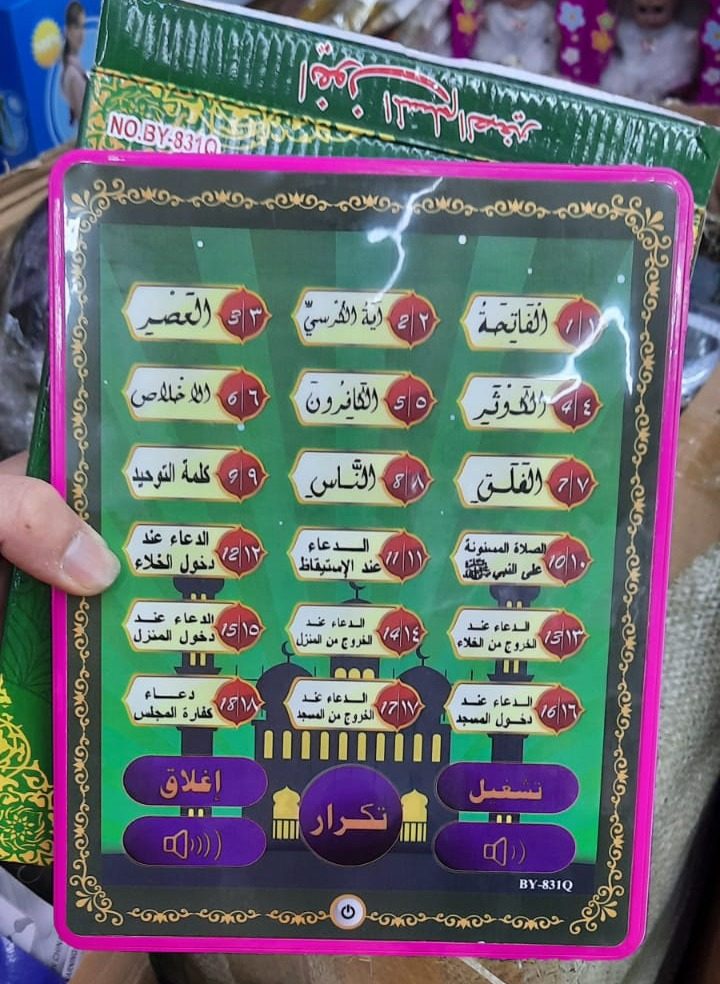 ايفون المسلم الصغير
NO.BY-831Q
الْفَاتِحَةُ 1/١
آيَةُ الْكُرْسِيِّ 2/٢
الْعَصْرِ 3/٣
الْكَوْثَرِ 4/٤
الْكَافِرُونَ 5/٥
الاخلاص 6/٦
الْفَلَقِ 7/٧
النَّاسِ 8/٨
كلمة التوحيد 9/٩
الصلاة المسنونة
على النبي ﷺ 10/١٠
الـدعاء
عند الإستيقاظ 11/١١
الدعاء عند
دخول الخلاء 12/١٢
الدعاء عند
الخروج من الخلاء 13/١٣
الدعاء عند
الخروج من المنزل 14/١٤
الدعاء عند
دخول المنزل 15/١٥
الدعاء عند
دخول المسجد 16/١٦
الدعاء عند
الخروج من المسجد 17/١٧
دعـاء
كفارة المجلس 18/١٨
تشغيل
تكرار
إغلاق
BY-831Q